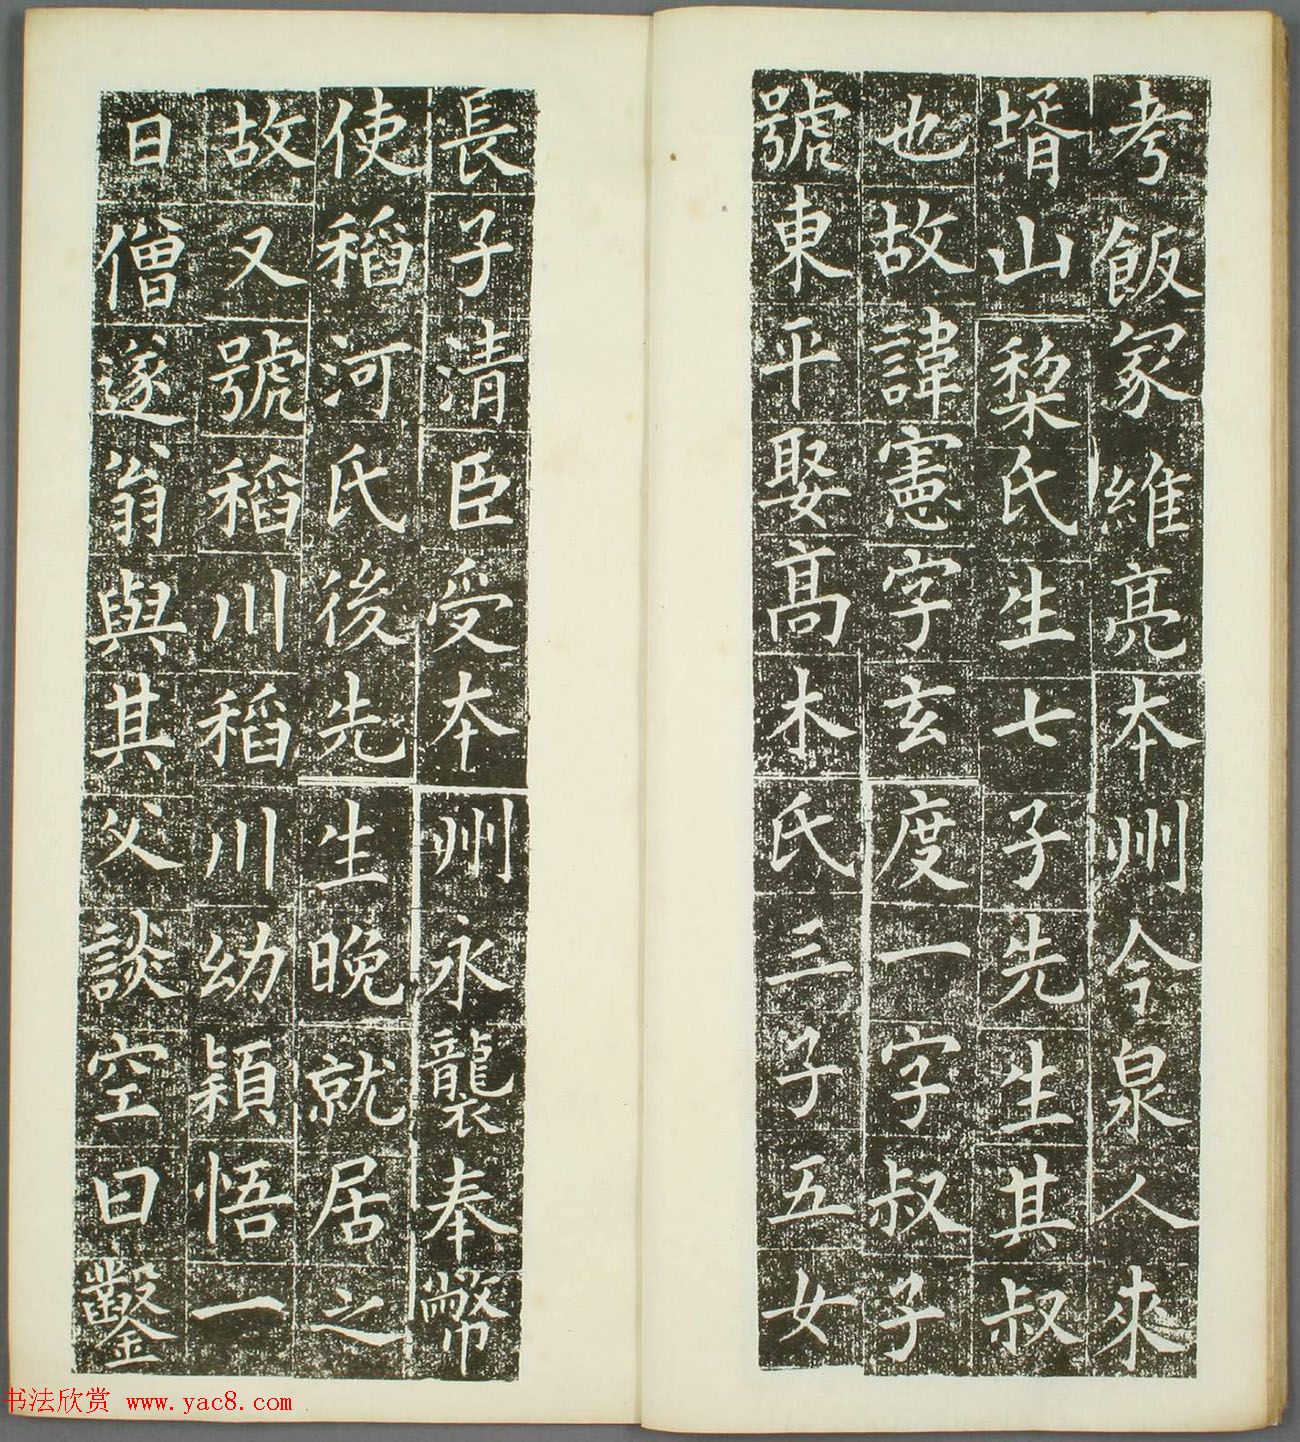 考飯冢維亮本州今泉人來
壻山棃氏生七子先生其叔
也故諱憲字玄度一字叔子
號東平娶髙木氏三子五女
長子清臣受本州永襲奉幣
使稻河氏後先生晚就居之
故又號稻川稻川幼穎悟一
日僧遂翁與其父談空曰鑿
书法欣赏 www.yac8.com